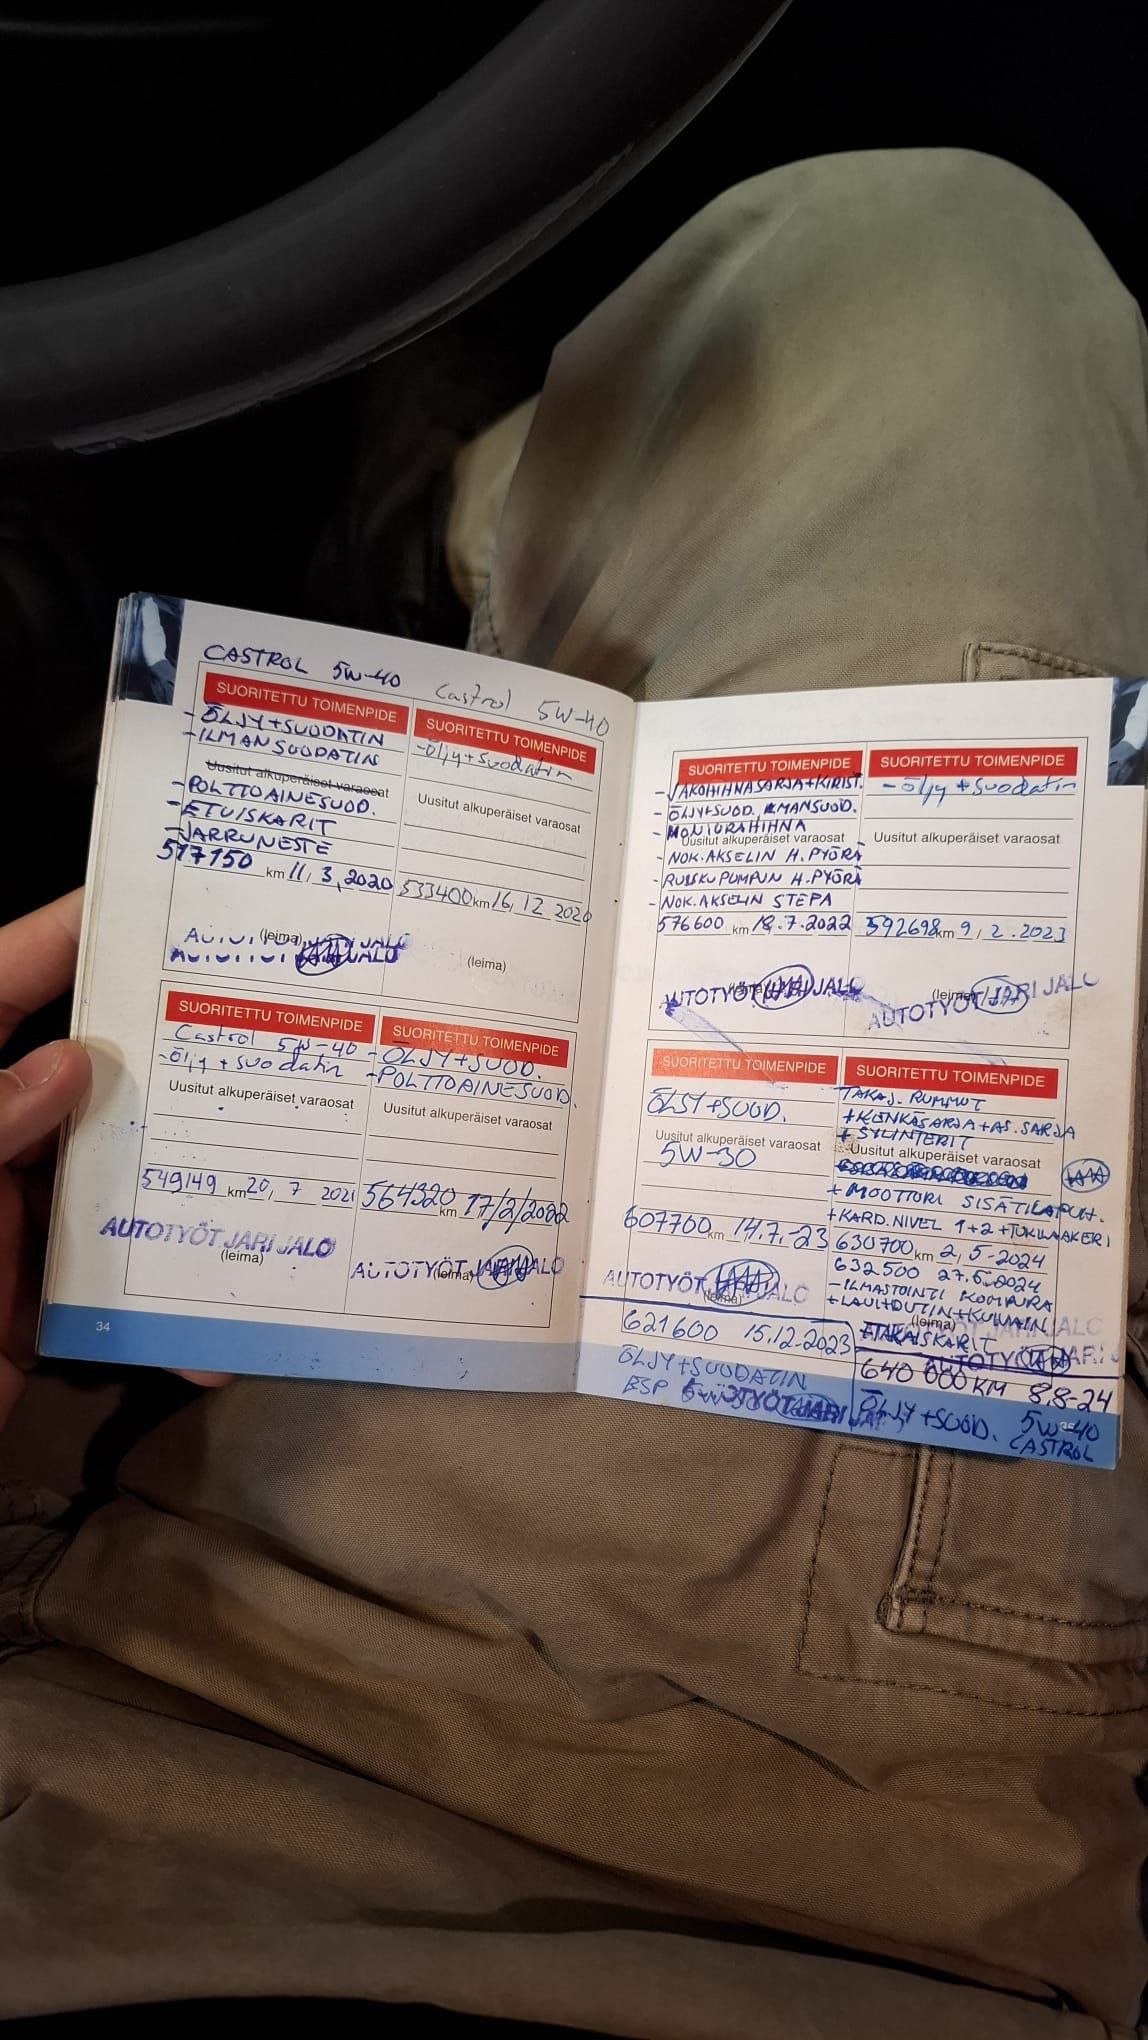 CASTROL 5W-40
SUORITETTU TOIMENPIDE
- ÖLJY+SUODATIN
- ILMANSUODATIN
Uusitut alkuperäiset varaosat
- POLTTOAINESUOD.
- ETUISKARIT
- JARRUNESTE
517150 km 11, 3, 2020
(leima)
JARI JALO
Castrol 5W-40
SUORITETTU TOIMENPIDE
- Öljy+Suodatin
Uusitut alkuperäiset varaosat
533400 km 16, 12 2020
(leima)
SUORITETTU TOIMENPIDE
Castrol 5W-40
- Öljy + suodatin
Uusitut alkuperäiset varaosat
549149 km 20, 7 2021
AUTOTYÖT JARI JALO
(leima)
SUORITETTU TOIMENPIDE
- ÖLJY+SUOD.
- POLTTOAINESUOD.
Uusitut alkuperäiset varaosat
564320 km 17/2/2022
AUTOTYÖT JARI JALO
(leima)
34
SUORITETTU TOIMENPIDE
- JAKOHIHNASARJA+KIRIST.
- ÖLJY+SUOD. ILMANSUOD.
- MONIURAHIHNA
Uusitut alkuperäiset varaosat
- NOK.AKSELIN H.PYÖRÄ
- RUISKUPUMPUN H.PYÖRÄ
- NOK.AKSELIN STEFA
576600 km 18.7.2022
(leima)
AUTOTYÖT JARI JALO
SUORITETTU TOIMENPIDE
- Öljy + Suodatin
Uusitut alkuperäiset varaosat
592698 km 9, 2.2023
(leima)
AUTOTYÖT JARI JALO
SUORITETTU TOIMENPIDE
ÖLJY+SUOD.
Uusitut alkuperäiset varaosat
5W-30
607760 km 14.7.-23
AUTOTYÖT JARI JALO
(leima)
621600 15.12.2023
ÖLJY+SUODATIN
SUORITETTU TOIMENPIDE
TAKAJ. RUMMUT
+KENKÄSARJA+AS.SARJA
+ SYLINTERIT
Uusitut alkuperäiset varaosat
+ MOOTTORI SISÄTILAPUH.
+KARD.NIVEL 1+2 +TUKILAAKERI
630700 km 2, 5-2024
632500 27.6-2024
- ILMASTOINTI KOMPURA
+LAUHDUTIN+KUIVAIN
(leima)
+TAKAISKARIT
AUTOTYÖT JARI JALO
640 000 KM 8.8-24
ÖLJY+SUOD. 5W-40
CASTROL